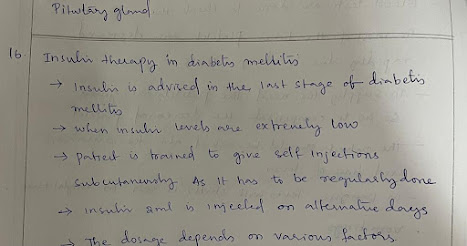 Pitutary gland.
16. Insulin therapy in diabetis mellitis
→ Insulin is advised in the last stage of diabetis
mellitis
→ when insulin levels are extremely low
→ patient is trained to give self injections
subcutaneously As it has to be regularly done
→ Insulin 2ml is injected on alternative days
→ The dosage depends on various factors